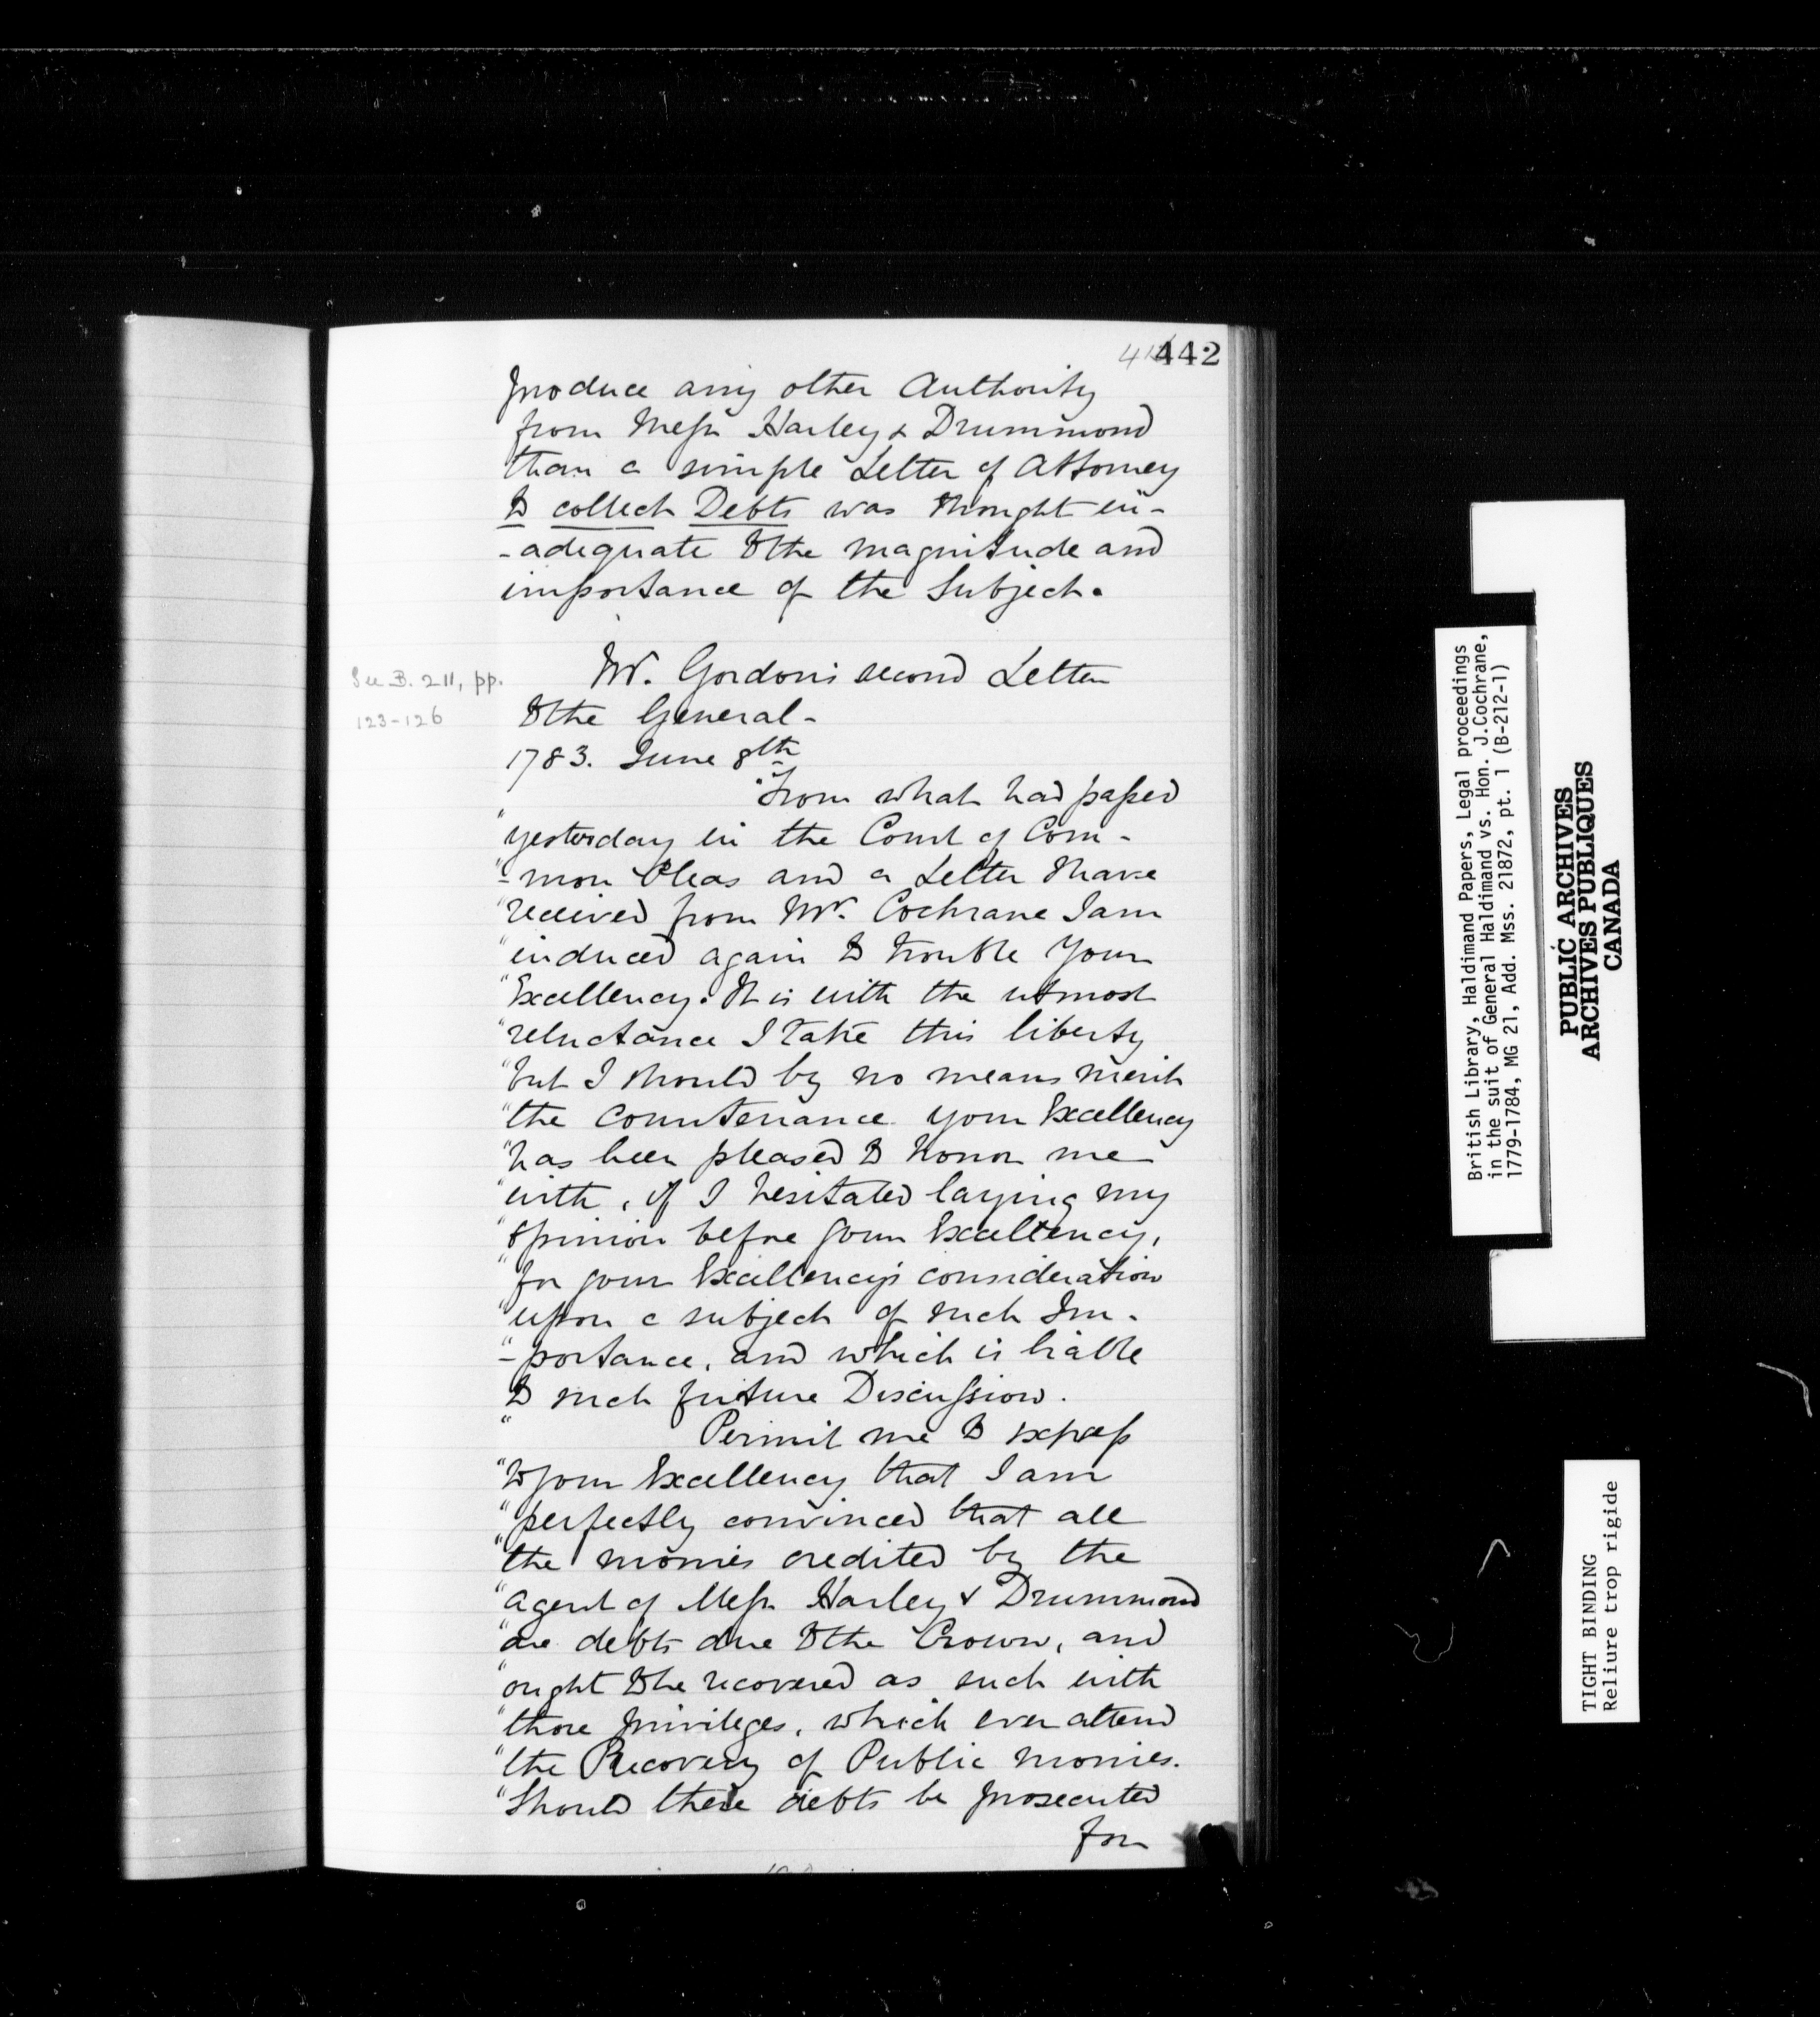 442
produce any other Authority
from Messrs Harley & Drummond
than a simple Letter of Attorney
to collect Debts was thought in-
-adequate to the magnitude and
importance of the Subject.
Mr. Gordon's second Letter
to the General-
See B. 211, pp.
123-126
1783. June 8th
"From what had passed
"yesterday in the Court of Com-
"-mon Pleas and a Letter I have
"received from Mr. Cochrane I am
"induced again to trouble Your
"Excellency. It is with the utmost
"reluctance I take this liberty
"but I should by no means merit
"the Countenance your Excellency
"has been pleased to honor me
"with, if I hesitated laying my
"opinion before your Excellency,
"for your Excellency's consideration
"upon a subject of such Im-
"-portance, and which is liable
to such future Discussion.
" Permit me to express
"to your Excellency that I am
"perfectly convinced that all
"the monies credited by the
"agent of Messrs Harley & Drummond
"are debts due to the Crown, and
"ought to be recovered as such with
"those privileges, which ever attend
"the Recovery of Public monies.
"Should these debts be prosecuted
for
British Library, Haldimand Papers, Legal proceedings
in the suit of General Haldimand vs. Hon. J.Cochrane,
1779-1784, MG 21, Add. Mss. 21872, pt. 1 (B-212-1)
PUBLIC ARCHIVES
ARCHIVES PUBLIQUES
CANADA
TIGHT BINDING
Reliure trop rigide